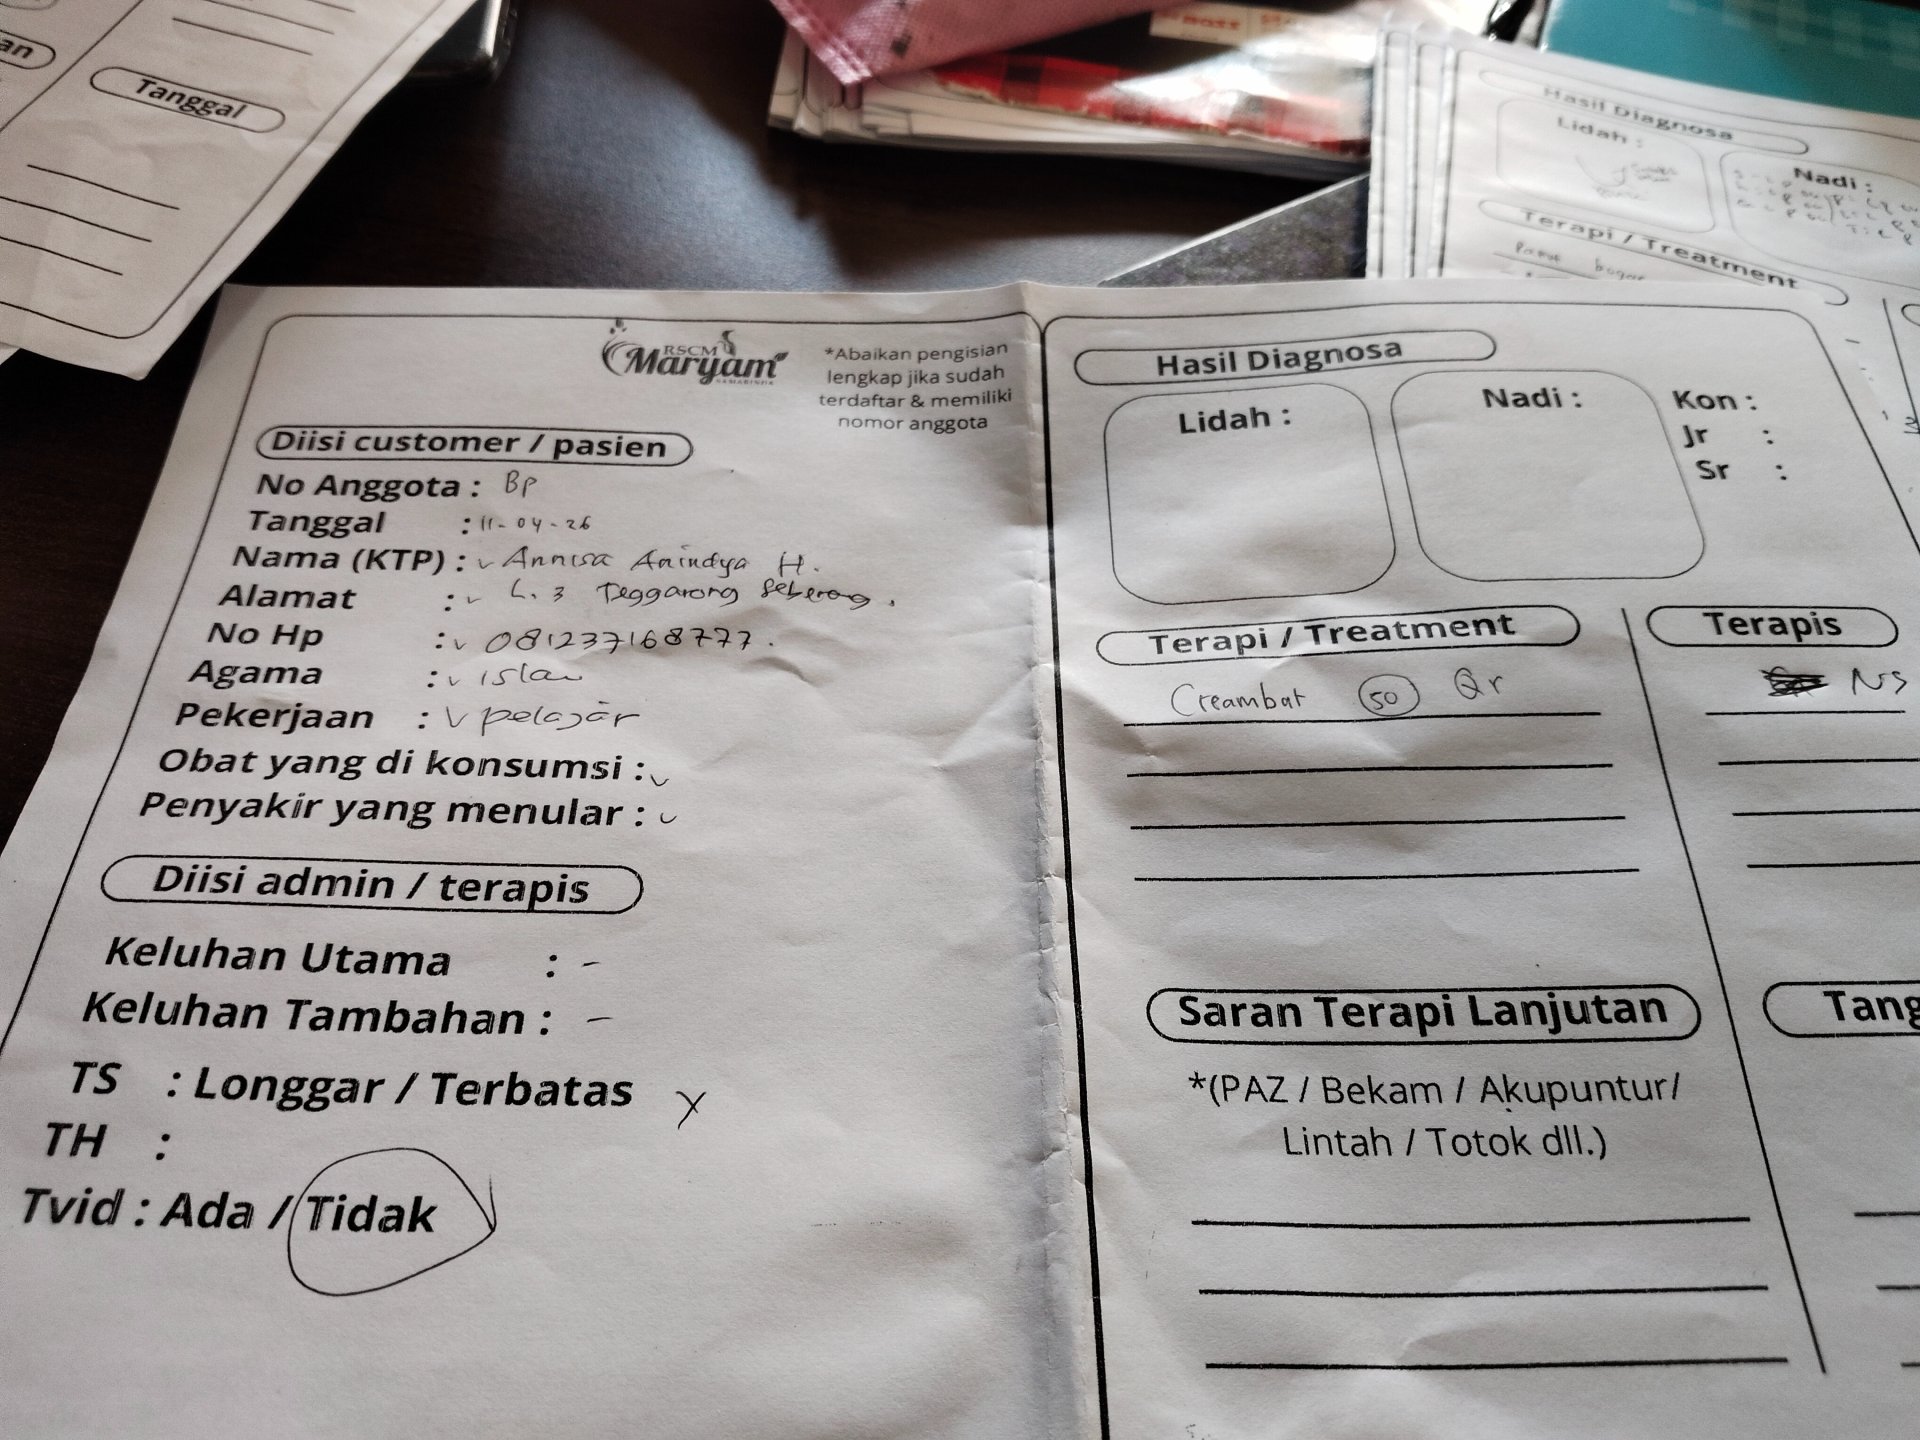 an
Tanggal
Hasil Diagnosa
Lidah :
Nadi :
Terapi / Treatment
RSCM
Maryam
SAMARINDA
*Abaikan pengisian
lengkap jika sudah
terdaftar & memiliki
nomor anggota
Diisi customer / pasien
No Anggota : BP
Tanggal : 11-04-26
Nama (KTP) : v Annisa Anindya H.
Alamat : v L. 3 Teggarong Seberag.
No Hp : v 081237168777.
Agama : v islam
Pekerjaan : v pelajar
Obat yang di konsumsi : v
Penyakir yang menular : v
Diisi admin / terapis
Keluhan Utama : -
Keluhan Tambahan : -
TS : Longgar / Terbatas X
TH :
Tvid : Ada / Tidak
Hasil Diagnosa
Lidah :
Nadi :
Kon :
Jr :
Sr :
Terapi / Treatment
Creambat 50 Qr
Terapis
NS
Saran Terapi Lanjutan
*(PAZ / Bekam / Akupuntur/
Lintah / Totok dll.)
Tang